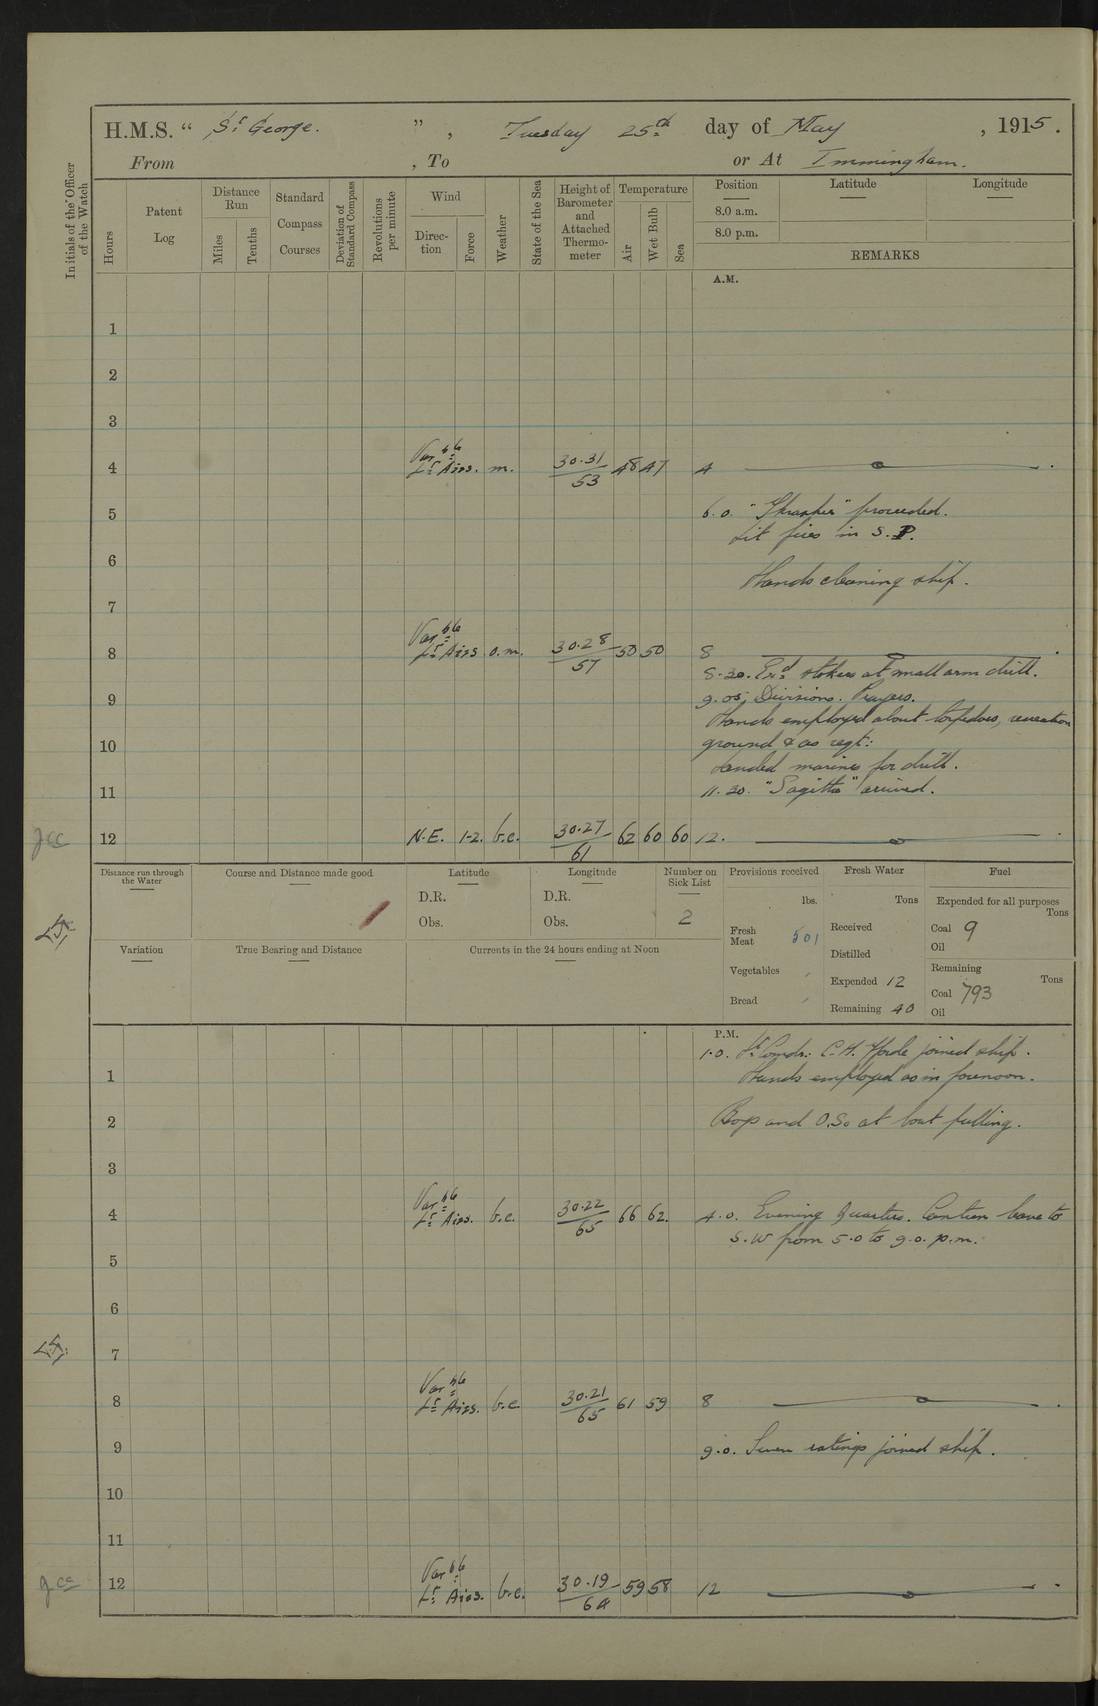 H.M.S. “ St George. ” , Tuesday 25th day of May , 1915 .
From , To or At Immingham.
Initials of the Officer of the Watch
Hours
Patent Log
Distance Run
Miles
Tenths
Standard Compass Courses
Deviation of Standard Compass
Revolutions per minute
Wind
Direction
Force
Weather
State of the Sea
Height of Barometer and Attached Thermometer
Temperature
Air
Wet Bulb
Sea
Position
8.0 a.m.
8.0 p.m.
Latitude
Longitude
REMARKS
A.M.
1
2
3
4 Varble Lt Airs. m. 30.31/53 48 47 4
5 6.0. "Thrasher" proceeded.
Lit fires in S.P.
6
Hands cleaning ship.
7
8 Varble Lt Airs o.m. 30.28/57 50 50 8
8.30. Exd stokers at small arm drill.
9 9.05. Divisions. Prayers.
Hands employed about torpedoes, recreation
10 ground & as reqt:
Landed marines for drill.
11 11.30. "Sagitta" arrived.
12 N.E. 1-2. b.c. 30.27/61 62 60 60 12.
Distance run through the Water
Course and Distance made good
Latitude
D.R.
Obs.
Longitude
D.R.
Obs.
Number on Sick List
2
Variation
True Bearing and Distance
Currents in the 24 hours ending at Noon
Provisions received
lbs.
Fresh Meat 501
Vegetables
Bread
Fresh Water
Tons
Received
Distilled
Expended 12
Remaining 40
Fuel
Expended for all purposes
Tons
Coal 9
Oil
Remaining
Tons
Coal 793
Oil
P.M.
1.0. Lt Comdr: C.H. joined ship.
1 Hands employed as in forenoon.
2 Boys and O.Ss at boat pulling.
3
4 Varble Lt Airs. b.c. 30.22/65 66 62. 4.0. Evening Quarters. Canteen leave to
S.W from 5.0 to 9.0. p.m.
5
6
7
8 Varble Lt Airs. b.c 30.21/65 61 59 8
9 9.0. Seven ratings joined ship.
10
11
12 Varble Lt Airs. b.c. 30.19/64 59 58 12